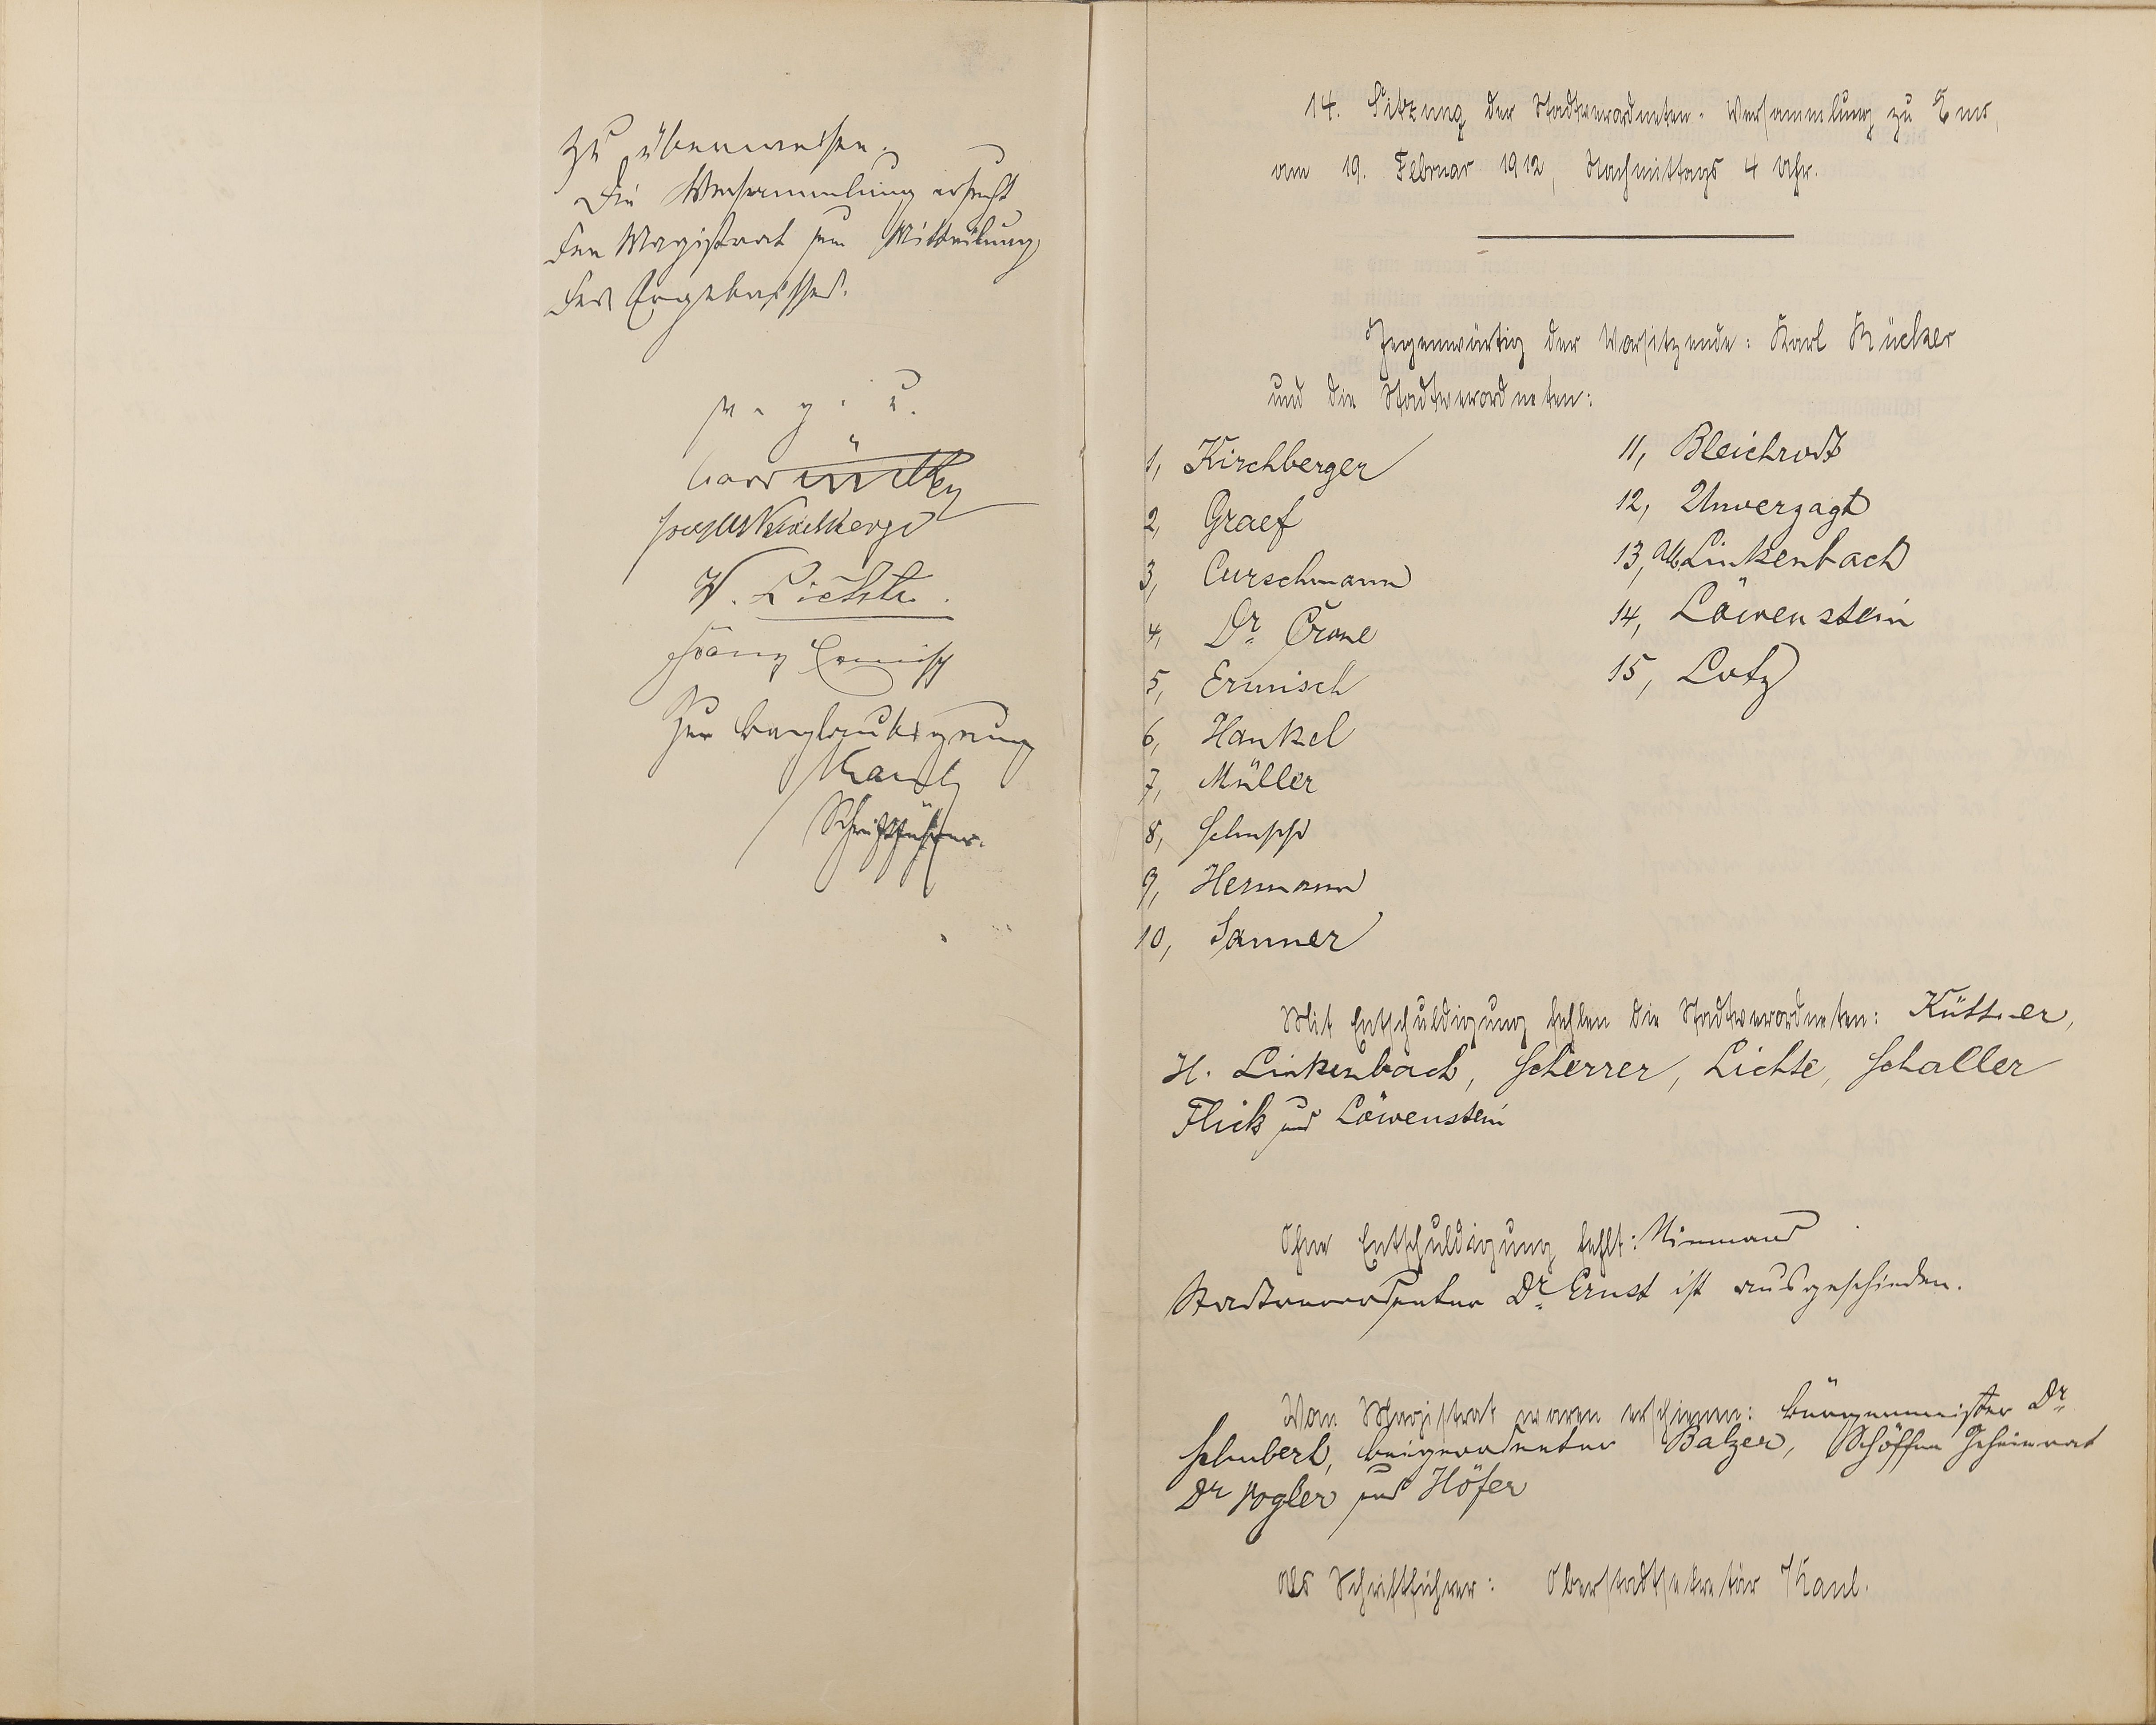 zu überweisen.
Die Versammlung ersucht
den Magistrat um Mitteilung
des Ergebnisses.
v. g. u.
Karl Rücker
Joseph Kirchberger
W. Lichte.
Franz Ermisch
Zur Beglaubigung
Kaul
Schriftführer.
14. Sitzung der Stadtverordneten-Versammlung zu Ems,
am 19. Februar 1912, Nachmittags 4 Uhr.
Gegenwärtig der Vorsitzende: Karl Rücker
und die Stadtverordneten:
1, Kirchberger
2, Graef
3, Curschmann
4, Dr. Crone
5, Ermisch
6, Hankel
7, Müller
8, Schupp
9, Hermann
10, Sanner
11, Bleichrodt
12, Unverzagt
13, Alb. Linkenbach
14, Löwenstein
15, Lotz
Mit Entschuldigung fehlen die Stadtverordneten: Küttner,
H. Linkenbach, Scherrer, Lichte, Schaller
Flick und Löwenstein
Ohne Entschuldigung fehlt: Niemand
Stadtverordneter Dr. Ernst ist ausgeschieden.
Vom Magistrat waren erschienen: Bürgermeister Dr.
Schubert, Beigeordneter Balzer, Schöffen Geheimrat
Dr Vogler und Höfer
Als Schriftführer: Oberstadtsekretär Kaul.